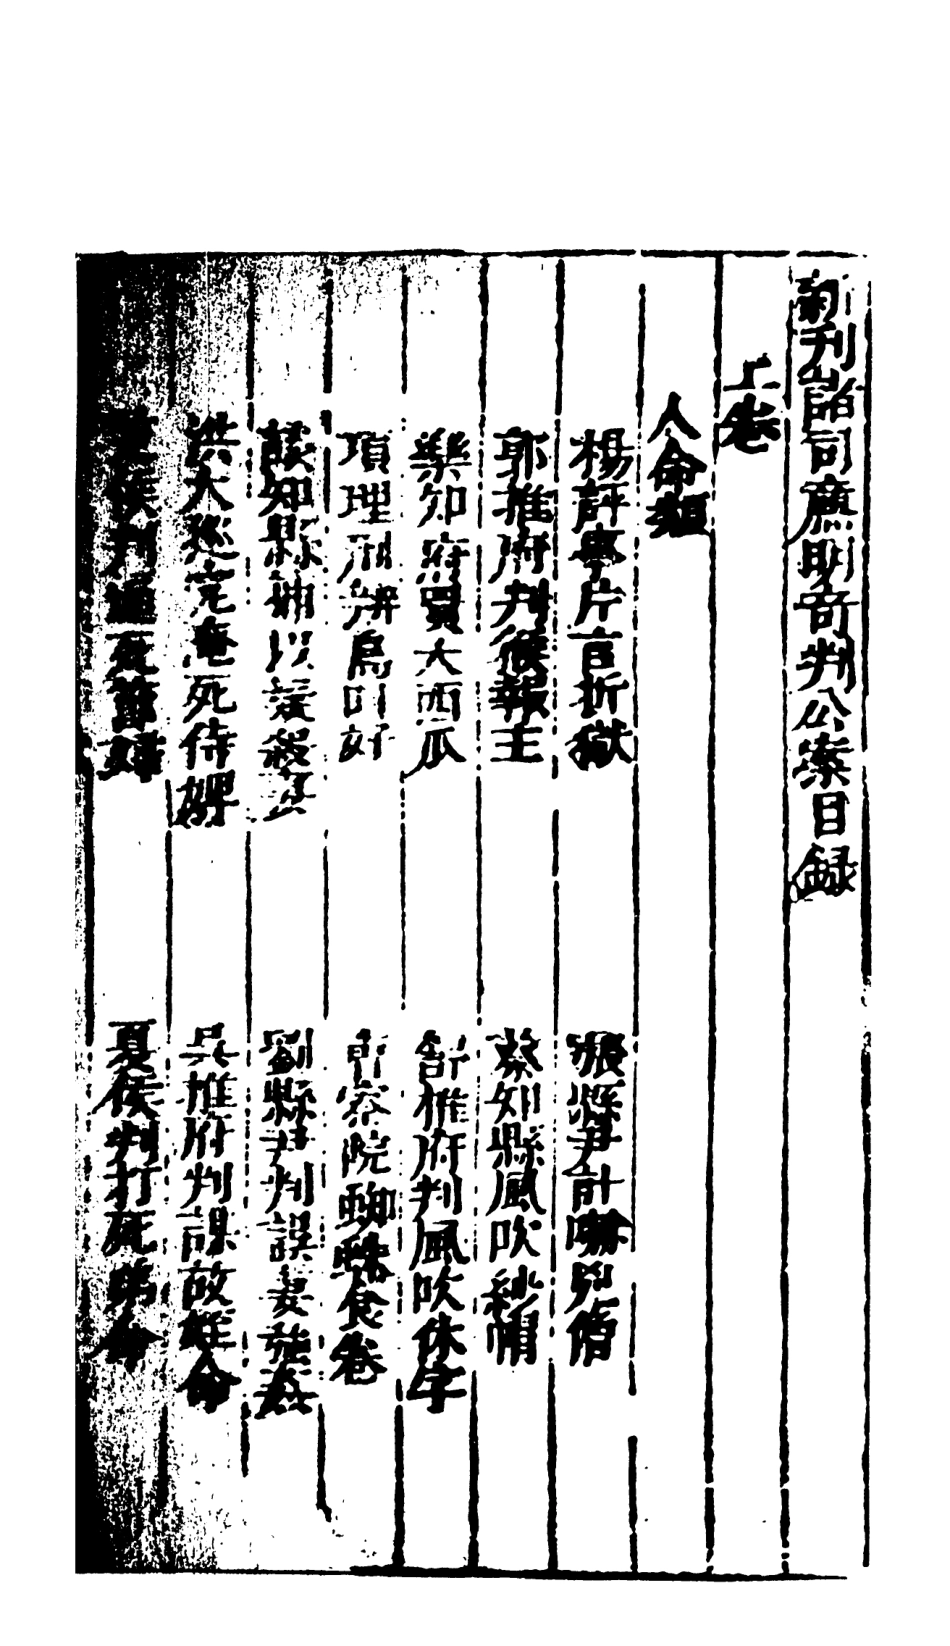 新刊諸司廉明奇判公案目録
上卷
人命類
楊評事片言折獄
張縣尹計嚇兇僧
郭推府判猴報主
蔡知縣風吹紗帽
樂知府買大西瓜
舒推府判風吹休字
項理刑辨鳥叫好
曹察院蜘蛛食卷
譚知縣捕以疑殺妻
劉縣尹判誤妻強姦
洪大巡究淹死侍婢
吳推府判謀故姪命
夏侯判打死弟命